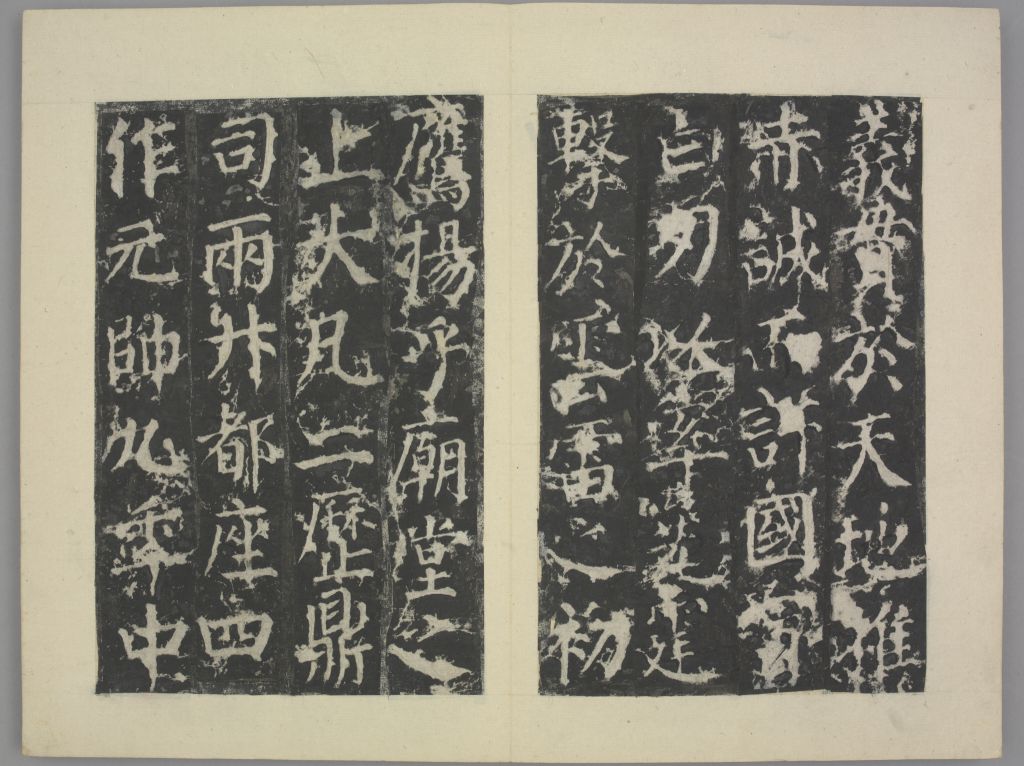 義貫於天地推
赤誠而許國冒
白刃以率先
擊於雲雷之初
鷹揚乎廟堂之
上大凡二歷鼎
司兩升都座四
作元帥九年中